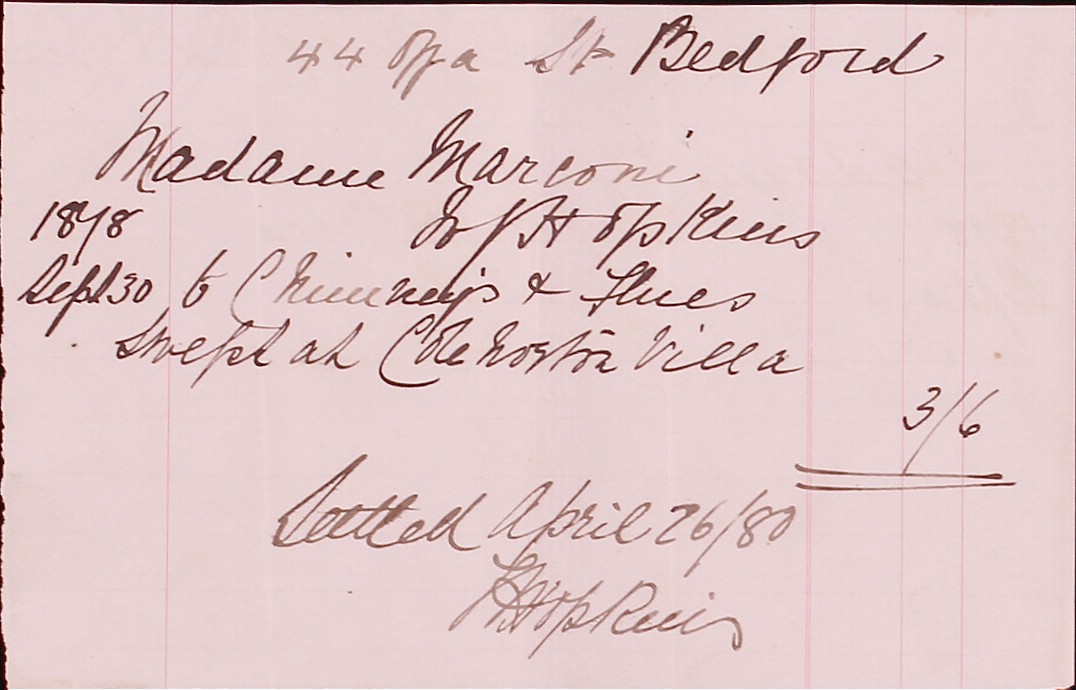 44 Offa St Bedford
Madame Marconi
1878 To J Hopkins
Sept 30 to Chimneys & Flues
Swept at Villa
3/6
Settled April 26/80
Hopkins